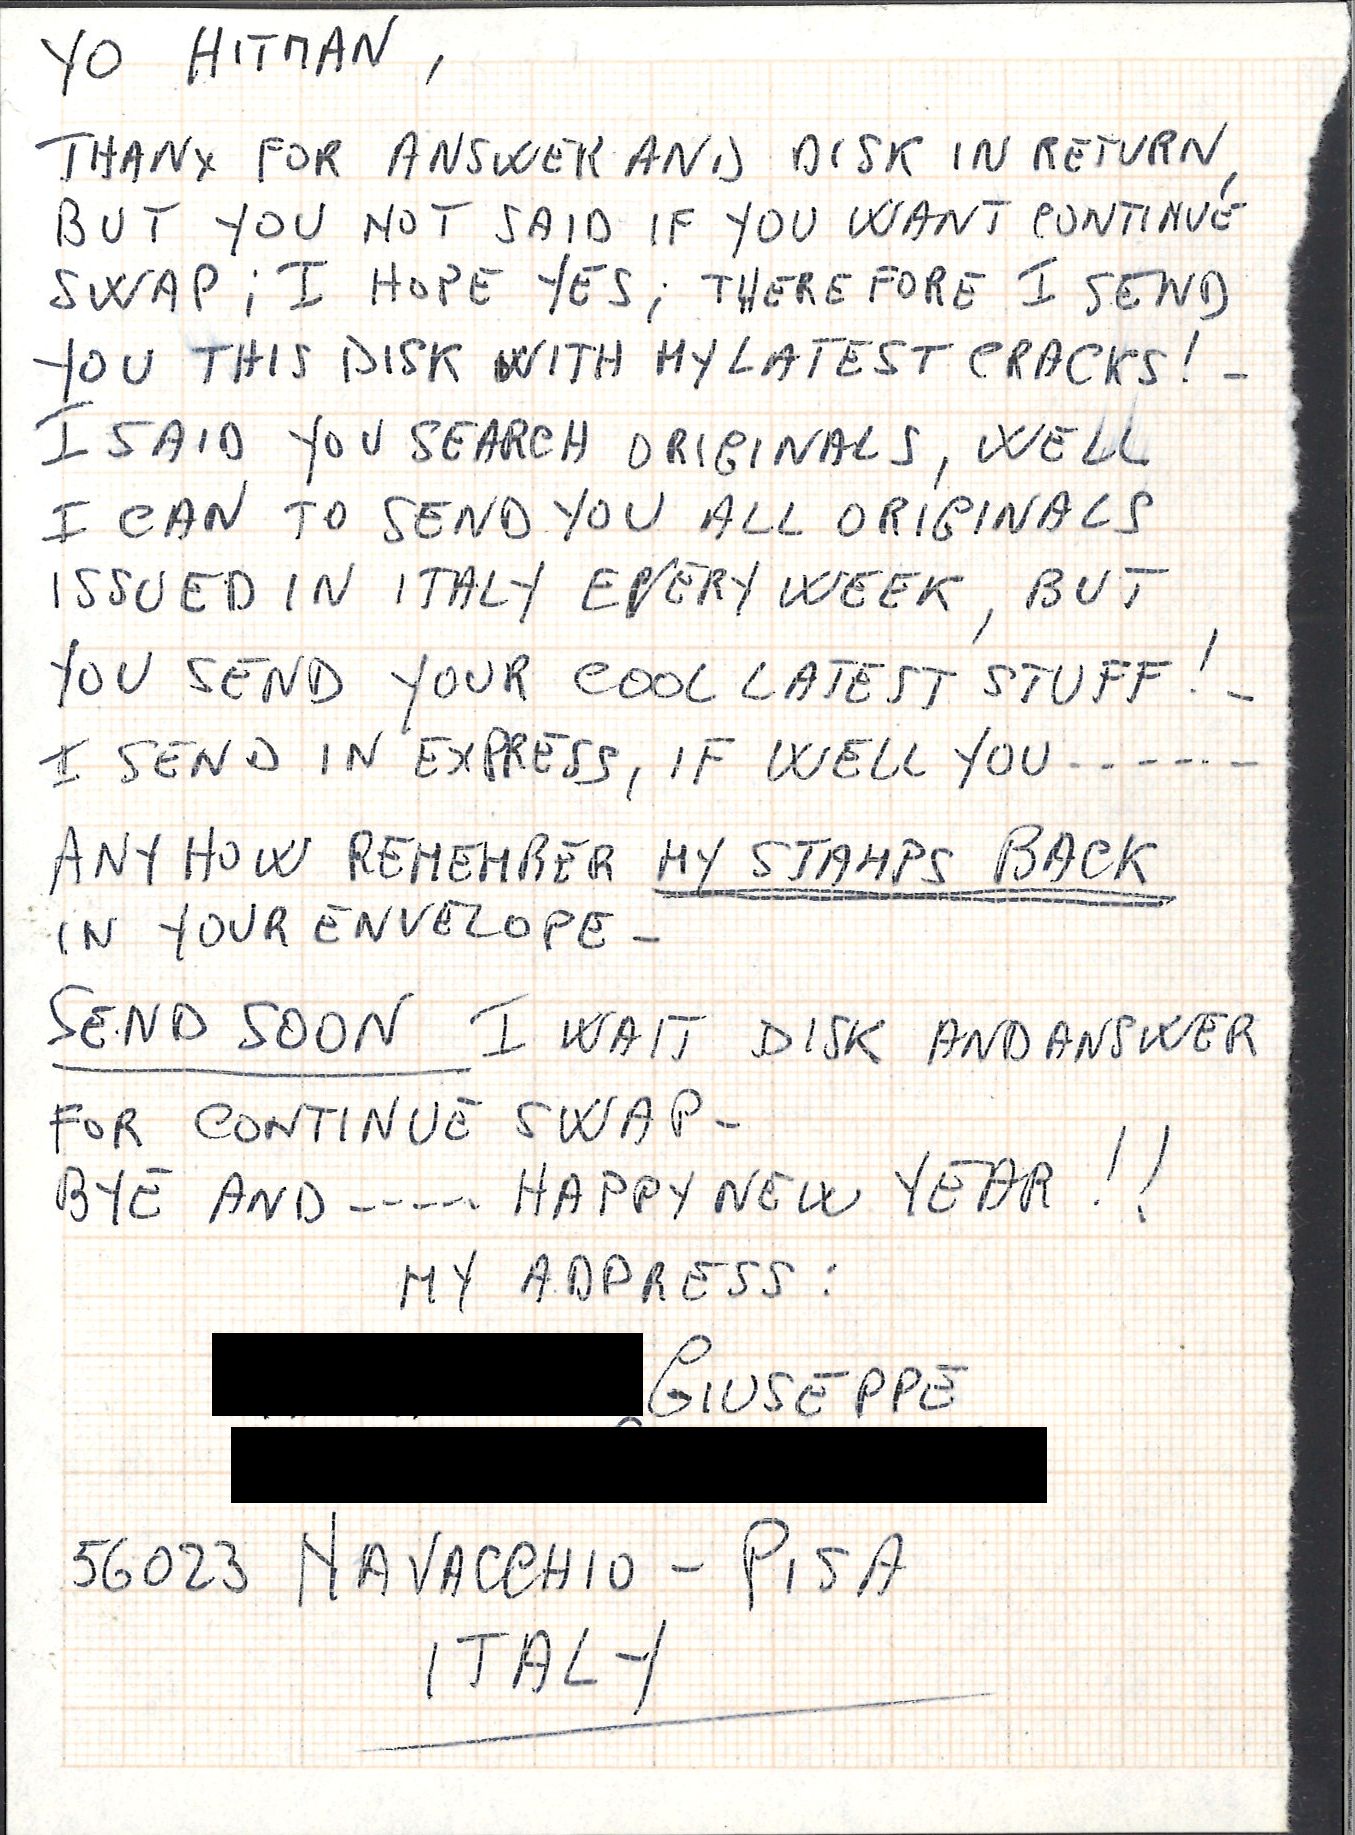 YO HITMAN,
THANX FOR ANSWER AND DISK IN RETURN,
BUT YOU NOT SAID IF YOU WANT CONTINUE
SWAP; I HOPE YES; THEREFORE I SEND
YOU THIS DISK WITH MY LATEST CRACKS! -
I SAID YOU SEARCH ORIGINALS, WELL
I CAN TO SEND YOU ALL ORIGINALS
ISSUED IN ITALY EVERY WEEK, BUT
YOU SEND YOUR COOL LATEST STUFF! -
I SEND IN EXPRESS, IF WELL YOU ------
ANYHOW REMEMBER MY STAMPS BACK
IN YOUR ENVELOPE -
SEND SOON I WAIT DISK AND ANSWER
FOR CONTINUE SWAP -
BYE AND ----- HAPPY NEW YEAR!!
MY ADDRESS:
GIUSEPPE
56023 NAVACCHIO - PISA
ITALY